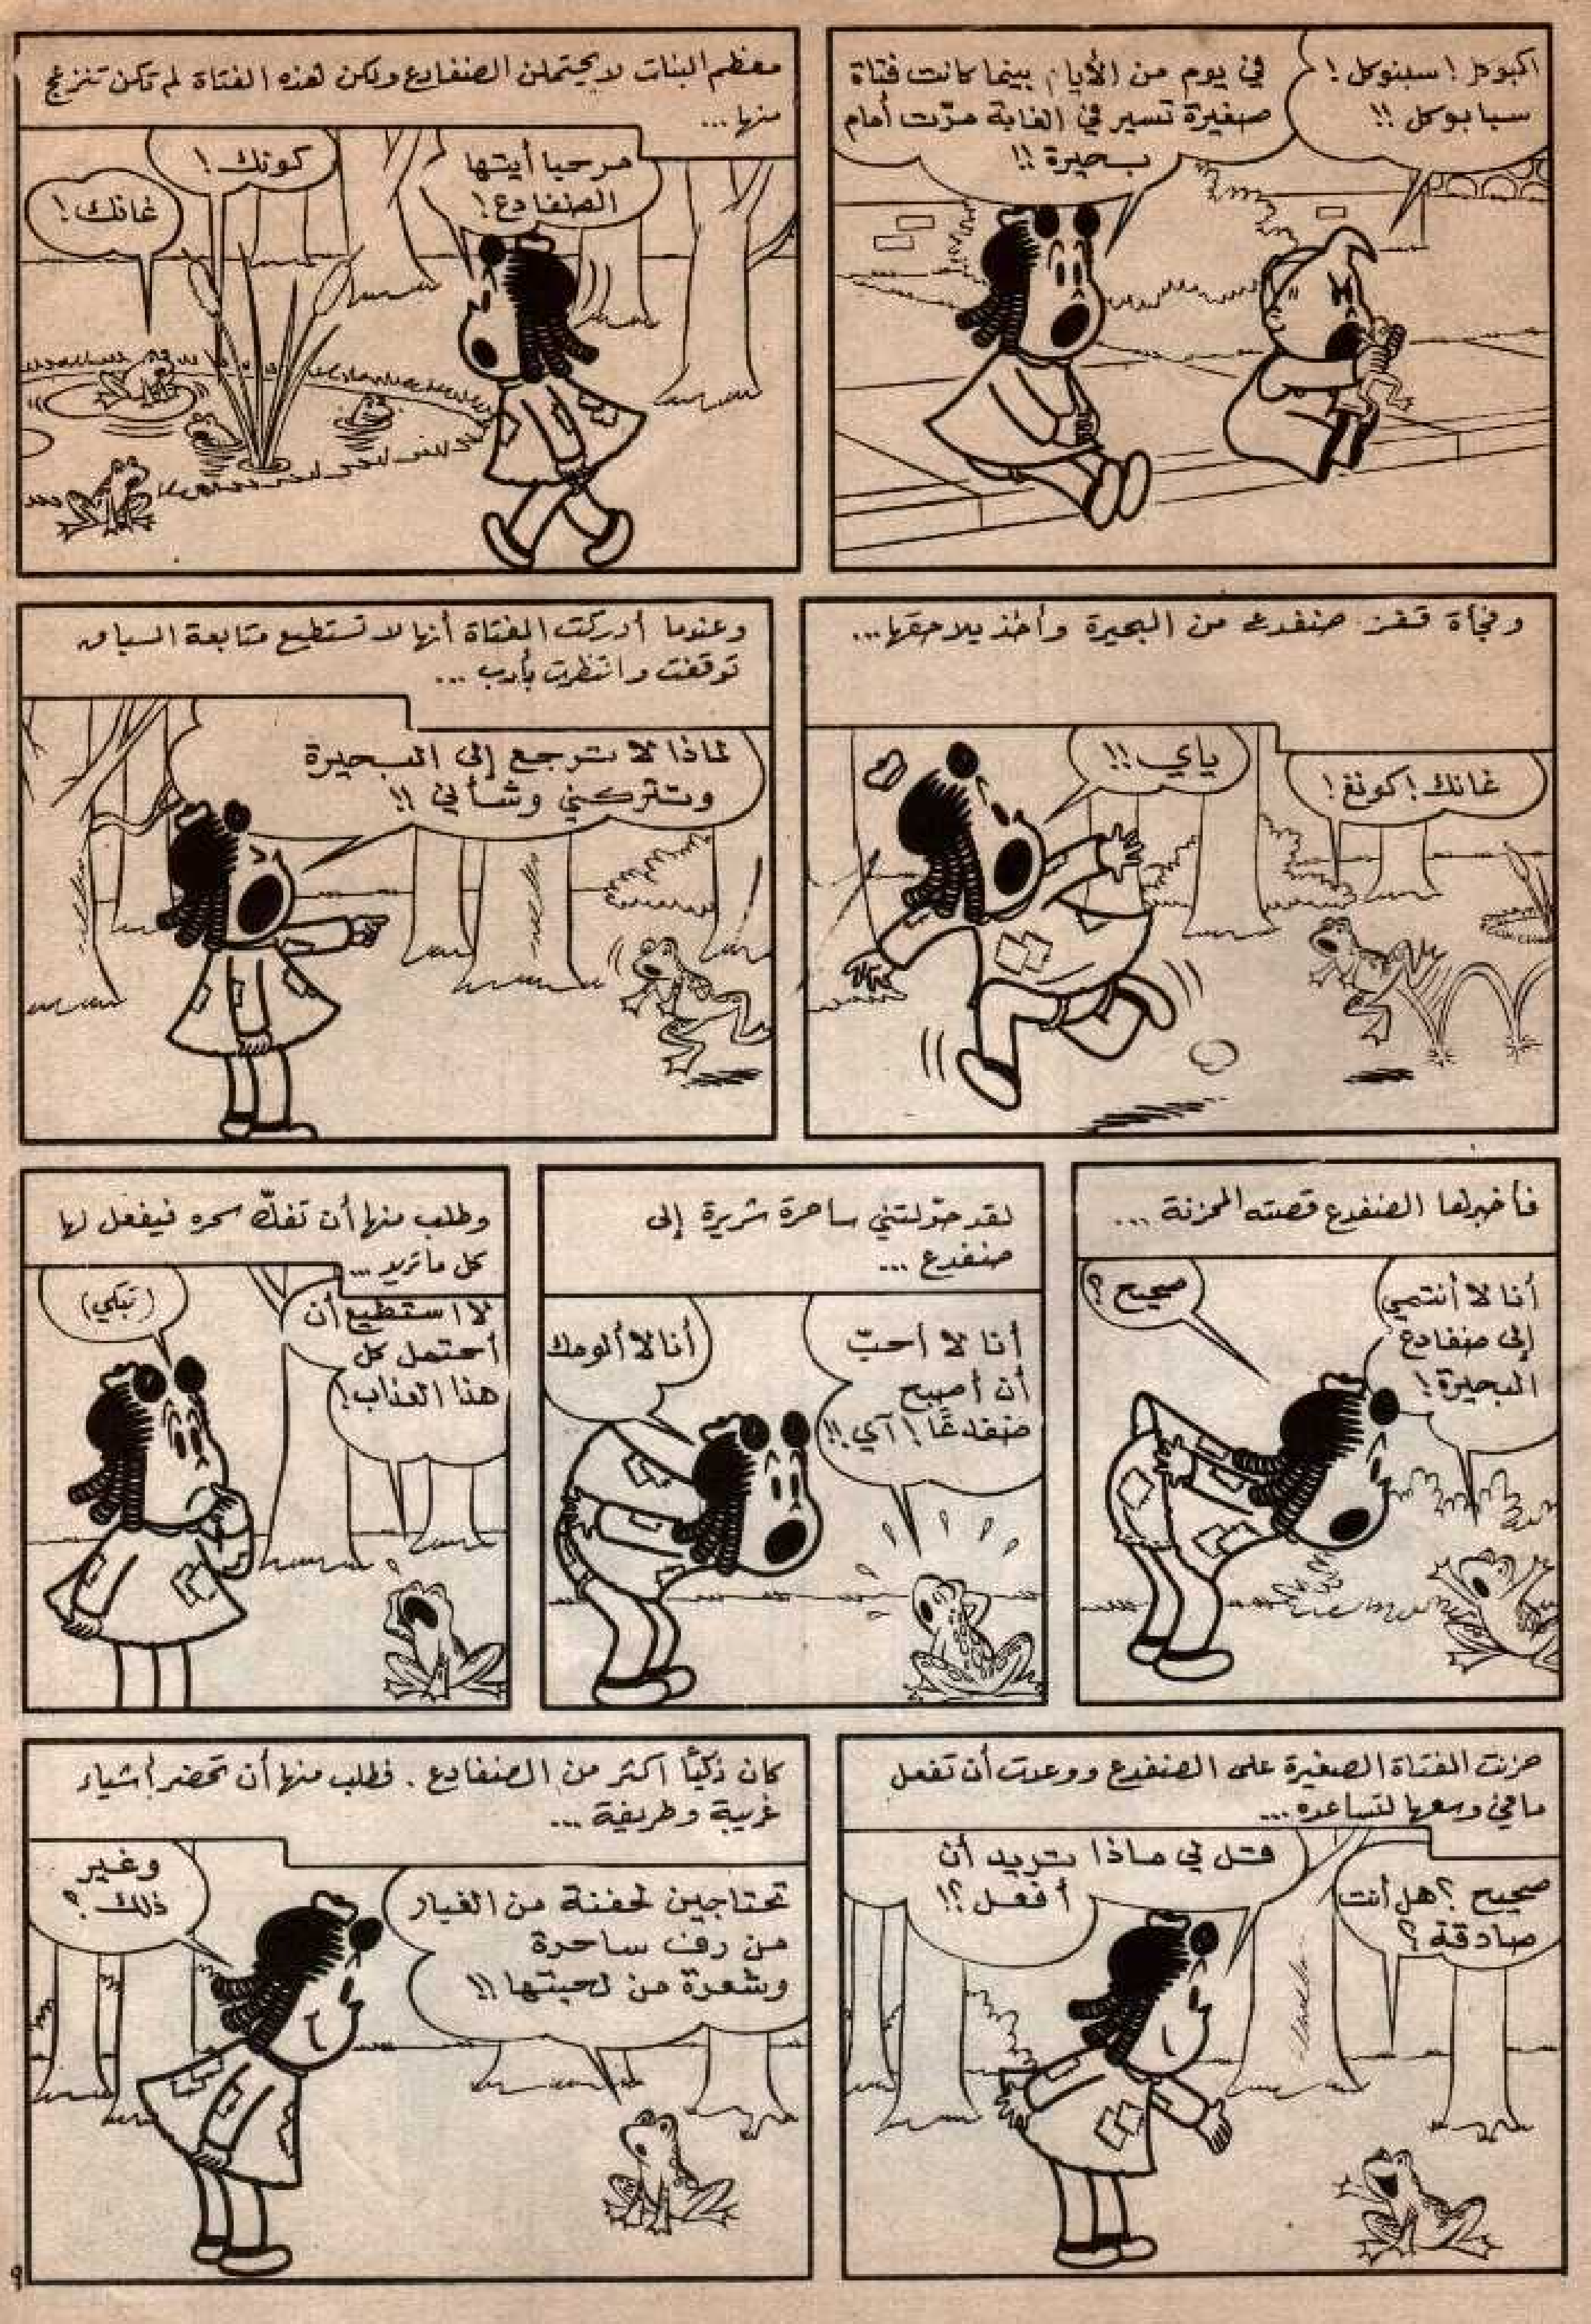 اكبوكل! سبنوكل!
سبابوكل!!
في يوم من الأيام بينما كانت فتاة
صغيرة تسير في الغابة مرّت أمام
بحيرة!!
معظم البنات لا يحتملن الضفادع ولكن هذه الفتاة لم تكن تنزعج
منها...
مرحبا أيتها
الضفادع!
كونك!
غانك!
وفجأة قفز ضفدع من البحيرة وأخذ يلاحقها...
غانك! كونغ!
ياي!!
وعندما أدركت الفتاة أنها لا تستطيع متابعة السباق
توقفت وانتظرت بأدب...
لماذا لا ترجع إلى البحيرة
وتتركني وشأني!!
فأخبرها الضفدع قصته المحزنة...
أنا لا أنتمي
إلى ضفادع
البحيرة!
صحيح؟
لقد حوّلتني ساحرة شريرة إلى
ضفدع...
أنا لا أحبّ
أن أصبح
ضفدعًا! آي!!
أنا لا ألومك
وطلب منها أن تفكّ سحره فيفعل لها
كل ما تريد...
لا استطيع أن
أحتمل كل
هذا العذاب!
(تبكي)
حزنت الفتاة الصغيرة على الضفدع ووعدت أن تفعل
ما في وسعها لتساعده...
صحيح؟ هل أنت
صادقة؟
قل لي ماذا تريد أن
أفعل؟!
كان ذكيًا اكثر من الضفادع. فطلب منها أن تحضر أشياء
غريبة وطريفة...
تحتاجين لحفنة من الغبار
من رف ساحرة
وشعرة من لحيتها!!
وغير
ذلك؟
٩